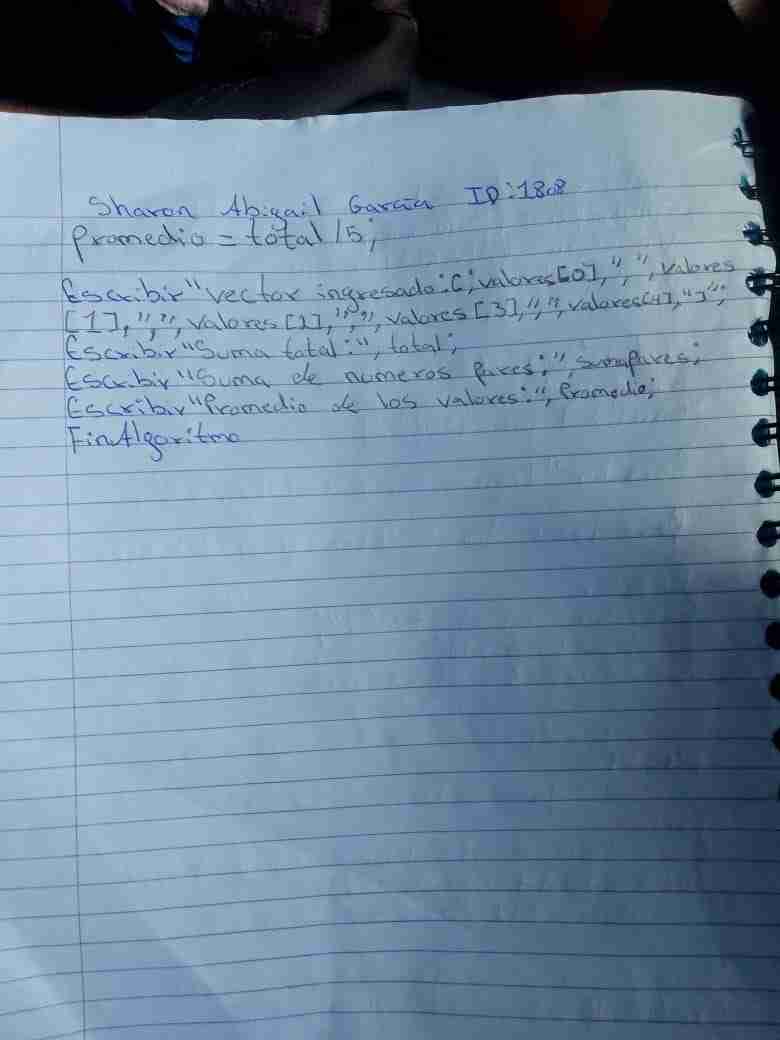 Sharon Abigail Garcia ID:1808
Promedio = total /5;
Escribir "vector ingresado:[; valores[0],",", valores
[1],",", valores [2],",", valores [3],",", valores[4],"]";
Escribir "Suma total:", total;
Escribir "Suma de numeros pares:", sumapares;
Escribir "Promedio de los valores:", Promedio;
FinAlgoritmo